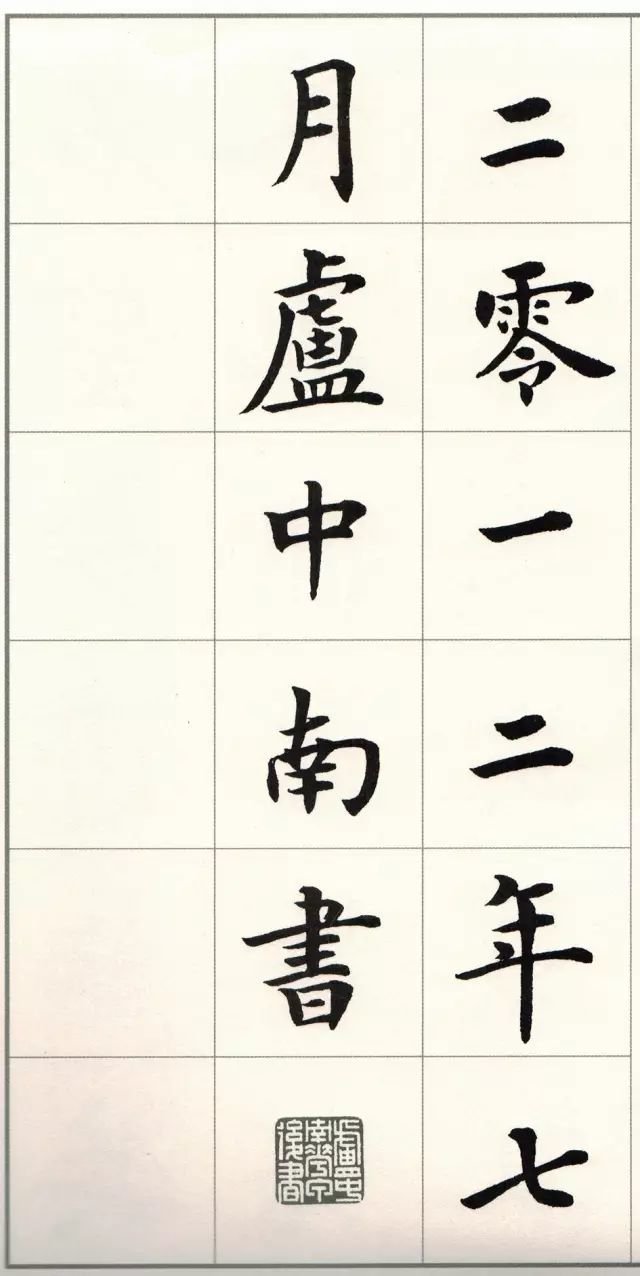 二零一二年七
月盧中南書